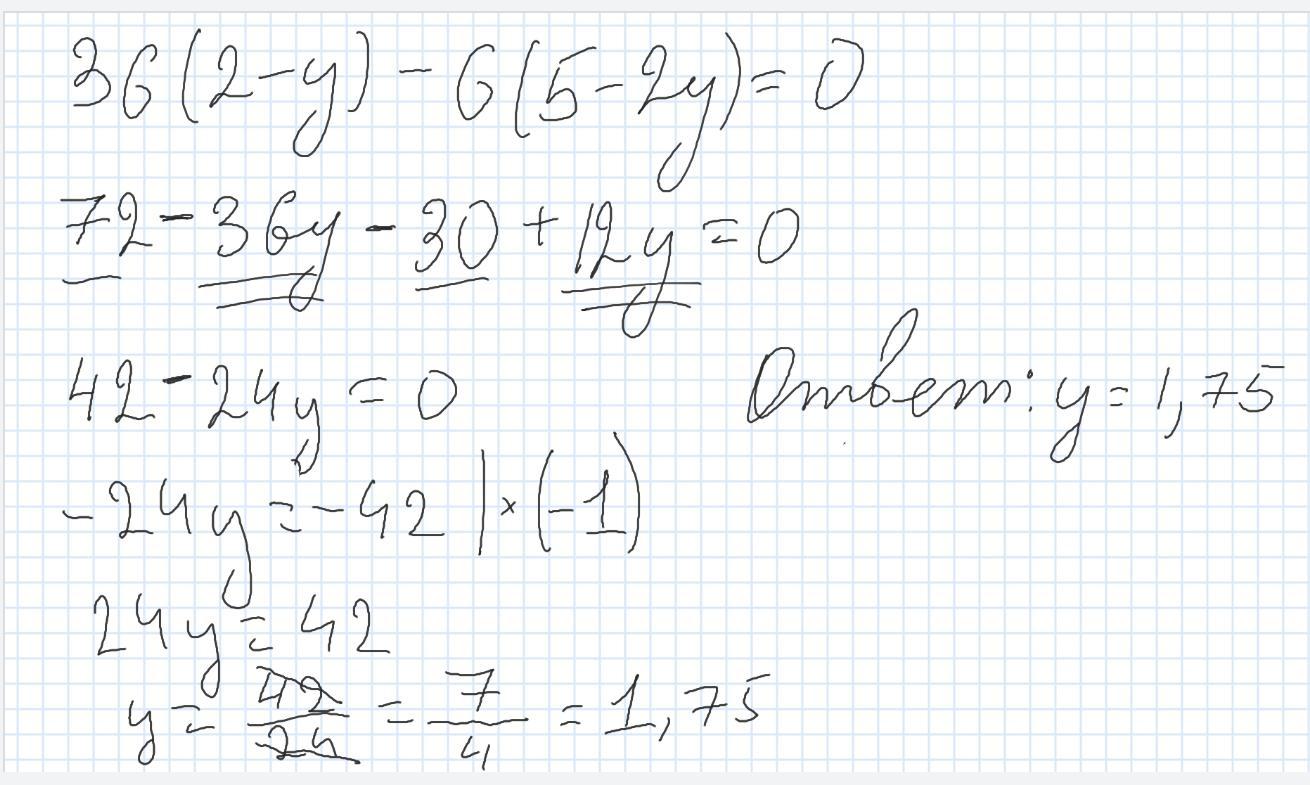 36(2-y)-6(5-2y)=0
72-36y-30+12y=0
42-24y=0
Ответ: y=1,75
-24y=-42 | × (-1)
24y=42
y=42/24=7/4=1,75